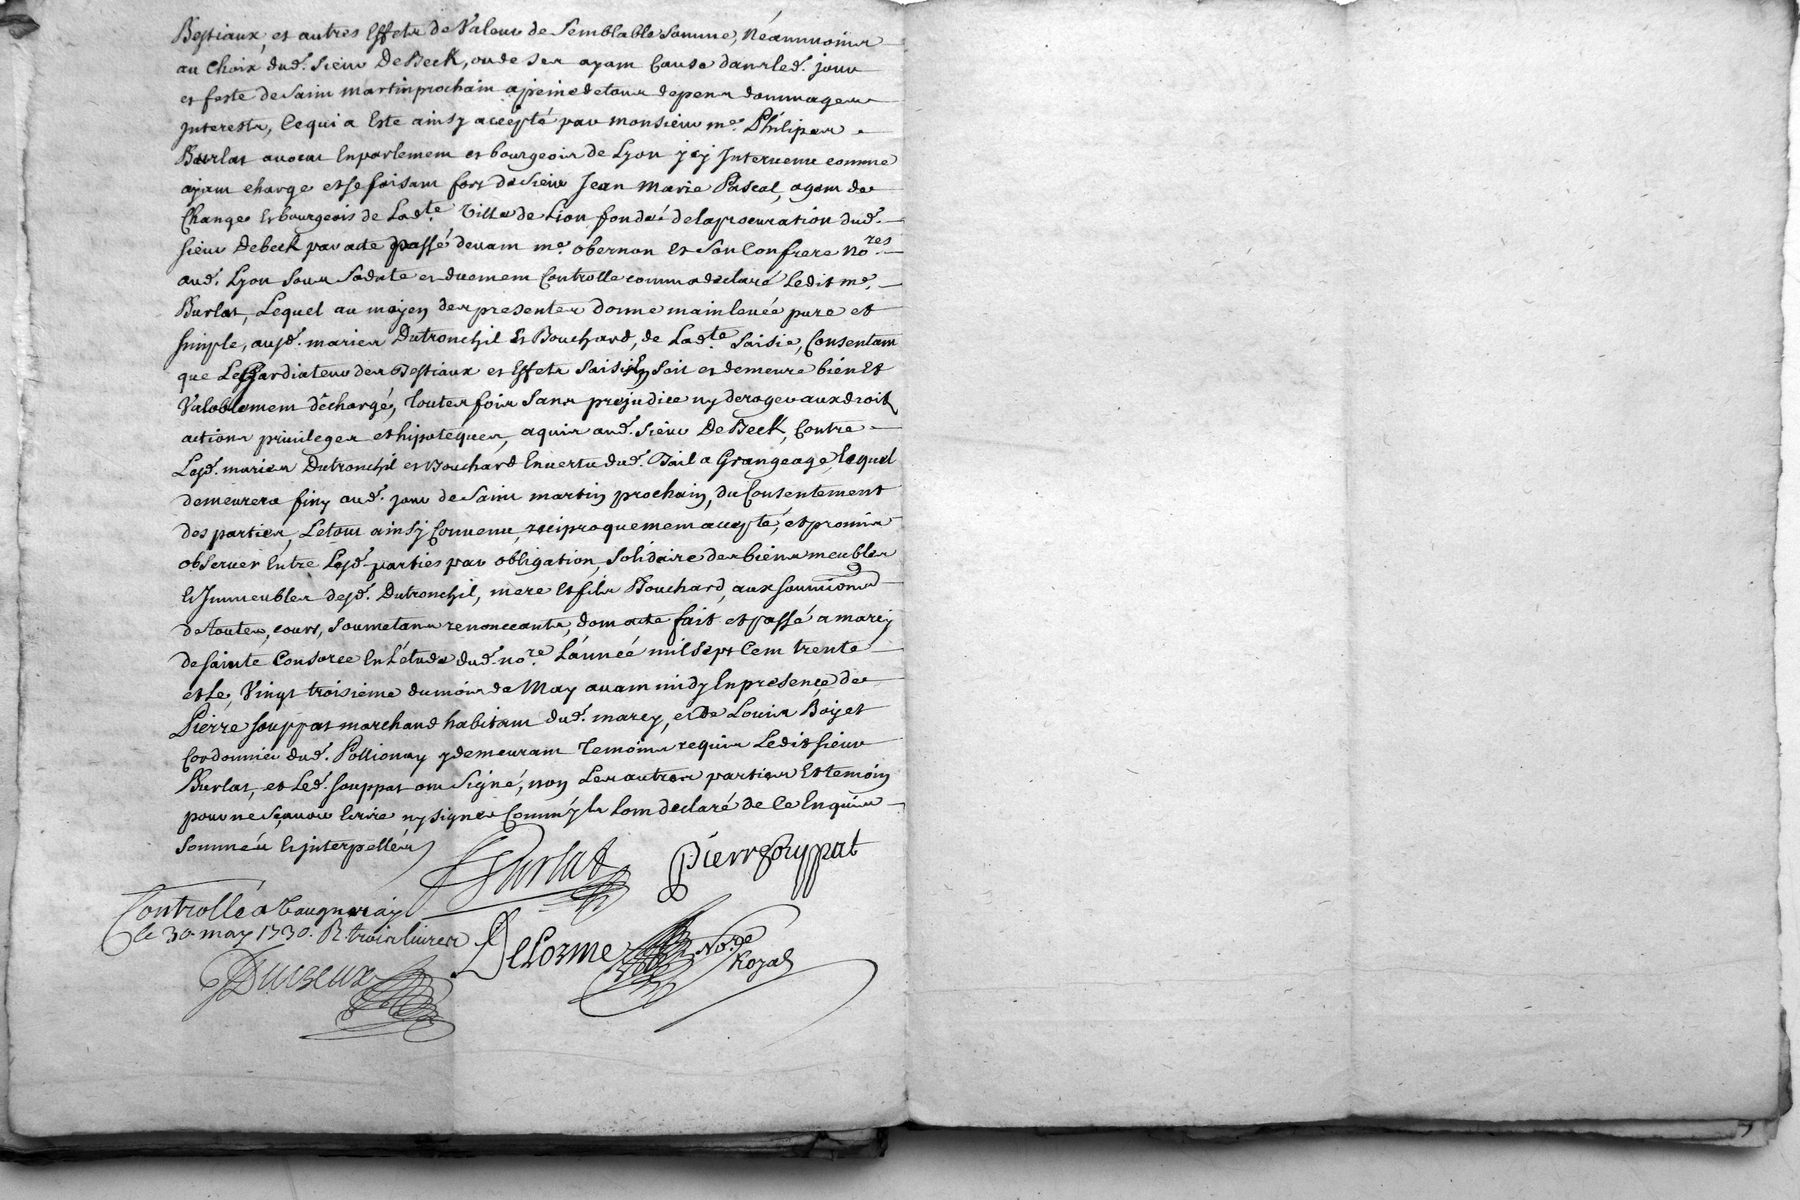 Bestiaux, et autres Effets de Valeur de Semblable Somme, Néanmoins
au Choix dud. Sieur De Beck, ou de ses ayam Cause dans led. jour
et feste de Saint martin prochain a peine de tous depens dommages
Interests, Ce qui a Este ainsy accepté par monsieur me. Philipes
Burlat avocat En parlement et bourgeois de Lyon jcy Intervenu comme
ayam charge et se faisam fort de Sieur Jean Marie Pascal, agem de
Change Et bourgeois de Ladte. Ville de Lion fondé de la procuration dud.
Sieur Debeck par acte passé devam me. obernon Et Son Confrere Nores.
aud. Lyon Sous Sa datte et duemem Controllé comm a déclaré Ledit me.
Burlat, Lequel au moyen des presentes donne mainlevée pure et
simple, ausd. mariés Dutronchil Et Bouchard, de Ladte. Saisie, Consentam
que Le Gardiateur des Bestiaux et Effets Saisis Soit et demeure bien Et
Valablemem déchargé, Toutes fois Sans prejudice ny deroger aux droits
actions privileges et hipoteques, aquis aud. Sieur De Beck, Contre
Lesd. mariés Dutronchil et Bouchard En vertu dud. Bail a Grangeage, Lequel
demeurera finy aud. jour de Saint martin prochain, du Consentement
des parties, Le tout ainsy Convenu, reciproquemem accepté, et promis
observer Entre Lesd. parties par obligation, Solidaire des biens meubles
Et Immeubles desd. Dutronchil, mere Et fils Bouchard, aux soumissions
de toutes, cours, Soumetans renonceants, dom acte fait et passé a marcy
de sainte Consorce En L'étude dud. nore. L'année mil Sept Cem trente
et Le, Vingt troisieme du mois de May avam midy En presence de
Pierre Souppat marchand habitam dud. marcy, et De Louis Boyet
Cordonnier dud. Pollionay y demeuram Temoins requis Ledit Sieur
Burlat, et Led. Souppat om Signé, non Les autres parties Et temoin
pour ne Sçavoir Ecrire ny signer Comm'ils l'om declaré de ce Enquis
Sommés Et jnterpellés
Burlat Pierre Souppat
Controllé a Vaugneray
le 30. may 1730. R. trois livres
Delorme No.re Royal